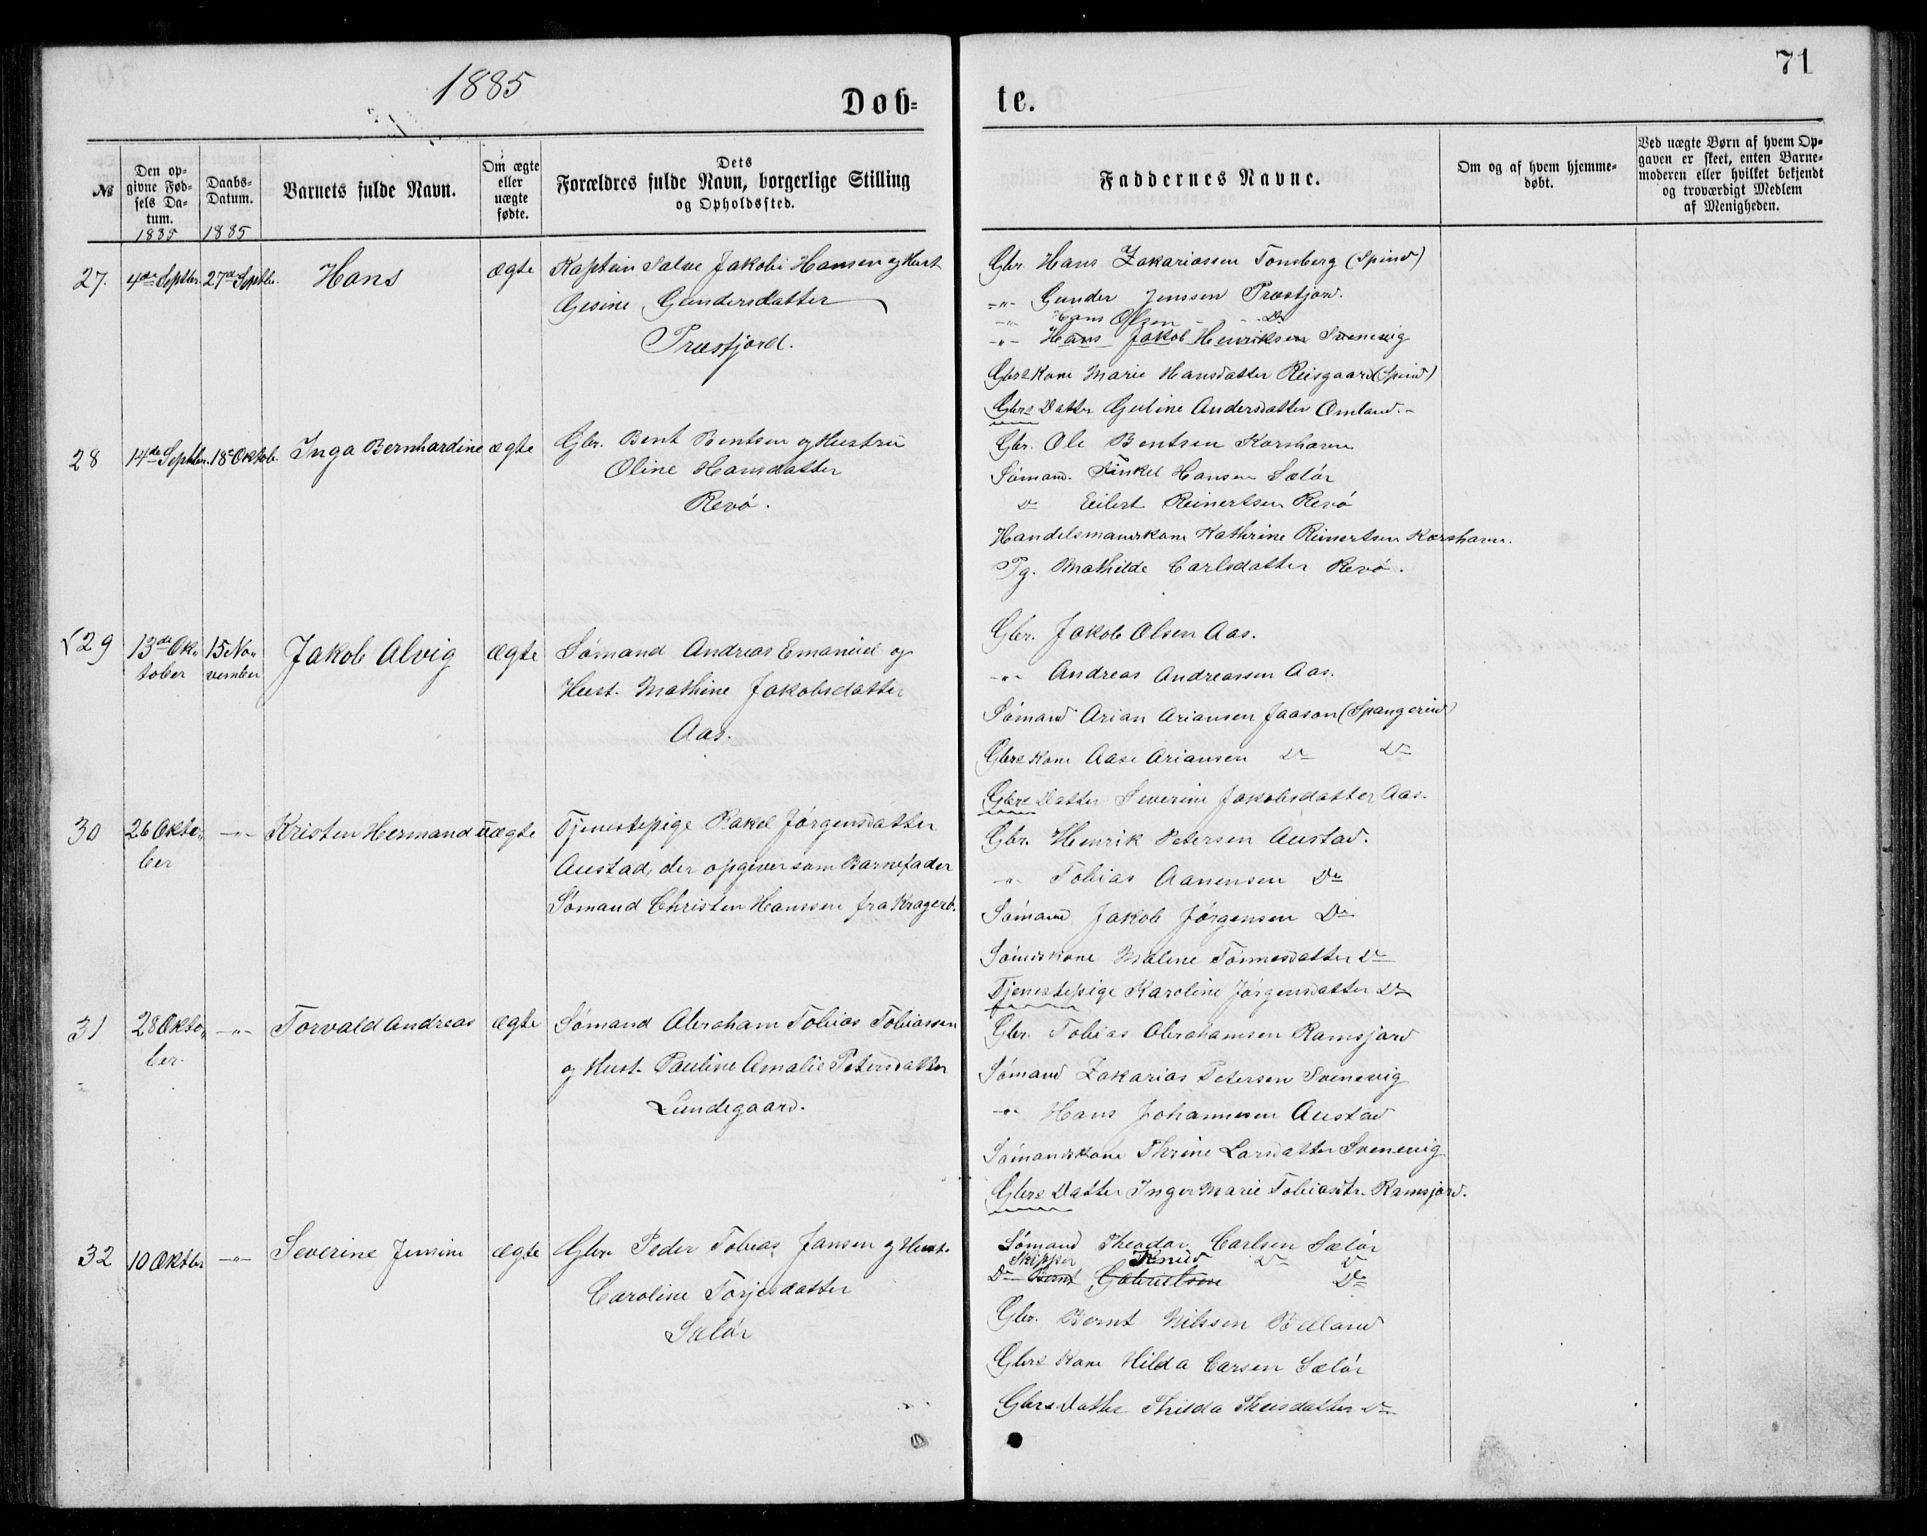 1885
71
Døb-
te.
№
Den op-
givne Fød-
sels Da-
tum.
1885
Daabs-
Datum.
1885
Barnets fulde Navn.
Om ægte
eller
uægte
fødte.
Dets
Forældres fulde Navn, borgerlige Stilling
og Opholdssted.
Faddernes Navne.
Om og af hvem hjemme-
døbt.
Ved uægte Børn af hvem Op-
gaven er skeet, enten Barne-
moderen eller hvilket bekjendt
og troværdigt Medlem
af Menigheden.
27. 4de Septbr. 27de Septbr. Hans ægte Kaptein Salve Jakobi Hansen og Hust.
Gesine Gundersdatter
Præstfjord.
Gbr. Hans Zakariassen Tønsberg (Spind)
-"- Gunder Jenssen Præstfjord.
-"- Hans Olsen - Do
-"- Hans Jakob Henriksen Svenevig
Gbrs Kone Marie Hansdatter Reisgaard (Spind)
Gbrs Datter Guline Andersdatter Omland.
28 14de Septbr. 18 Oktob. Inga Bernhardine ægte Gbr. Bent Bentsen og Hustru
Oline Hansdatter
Revø.
Gbr. Ole Bentsen Korshavn
Sømand. Tinkel Hansen Sælør
Do Eilert Reinertsen Revø
Handelsmandskone Kathrine Reinertsen Korshavn.
Pg. Mathilde Carlsdatter Revø.
29 13de Ok-
tober 15 No-
vember Jakob Alvig ægte Sømand Andreas Emanuel og
Hust. Mathine Jakobsdatter
Aas.
Gbr. Jakob Olsen Aas.
-"- Andreas Andreassen Aas.
Sømand Arian Ariansen Jaason (Spangereid)
Gbrs Kone Aase Ariansen Do Do
Gbrs Datter Severine Jakobsdatter Aas.
30 26 Okto-
ber -"- Kristen Hermand uægte Tjenestepige Rakel Jørgensdatter
Austad, der opgiver som Barnefader
Sømand Christen Hanssen fra Kragerø.
Gbr. Henrik Petersen Austad.
-"- Tobias Aanensen Do
Sømand Jakob Jørgensen Do
Sømdskone Malene Tønnesdatter Do
Tjenestepige Karoline Jørgensdatter Do
31 28 Okto-
ber. -"- Torvald Andreas ægte Sømand Abraham Tobias Tobiassen
og Hust. Pauline Amalie Petersdatter
Lundegaard.
Gbr. Tobias Abrahamsen Ramsjord
Sømand Zakarias Petersen Svenevig
-"- Hans Johannesen Austad
Sømandskone Thrine Larsdatter Svenevig
Gbrs Datter Inger Marie Tobiasdtr. Ramsjord.
32 10 Oktbr -"- Severine Jensine ægte Gbr. Peder Tobias Jansen og Hust.
Caroline Torjesdatter
Sælør
Sømand Theodor Carlsen Sælør
Skipper Knud Do Do
Do Bernt Gabrielsen Do
Gbr. Bernt Nilssen Belland
Gbrs Kone Hilda Carsen Sælør
Gbrs. Datter Thilda Theisdatter Do